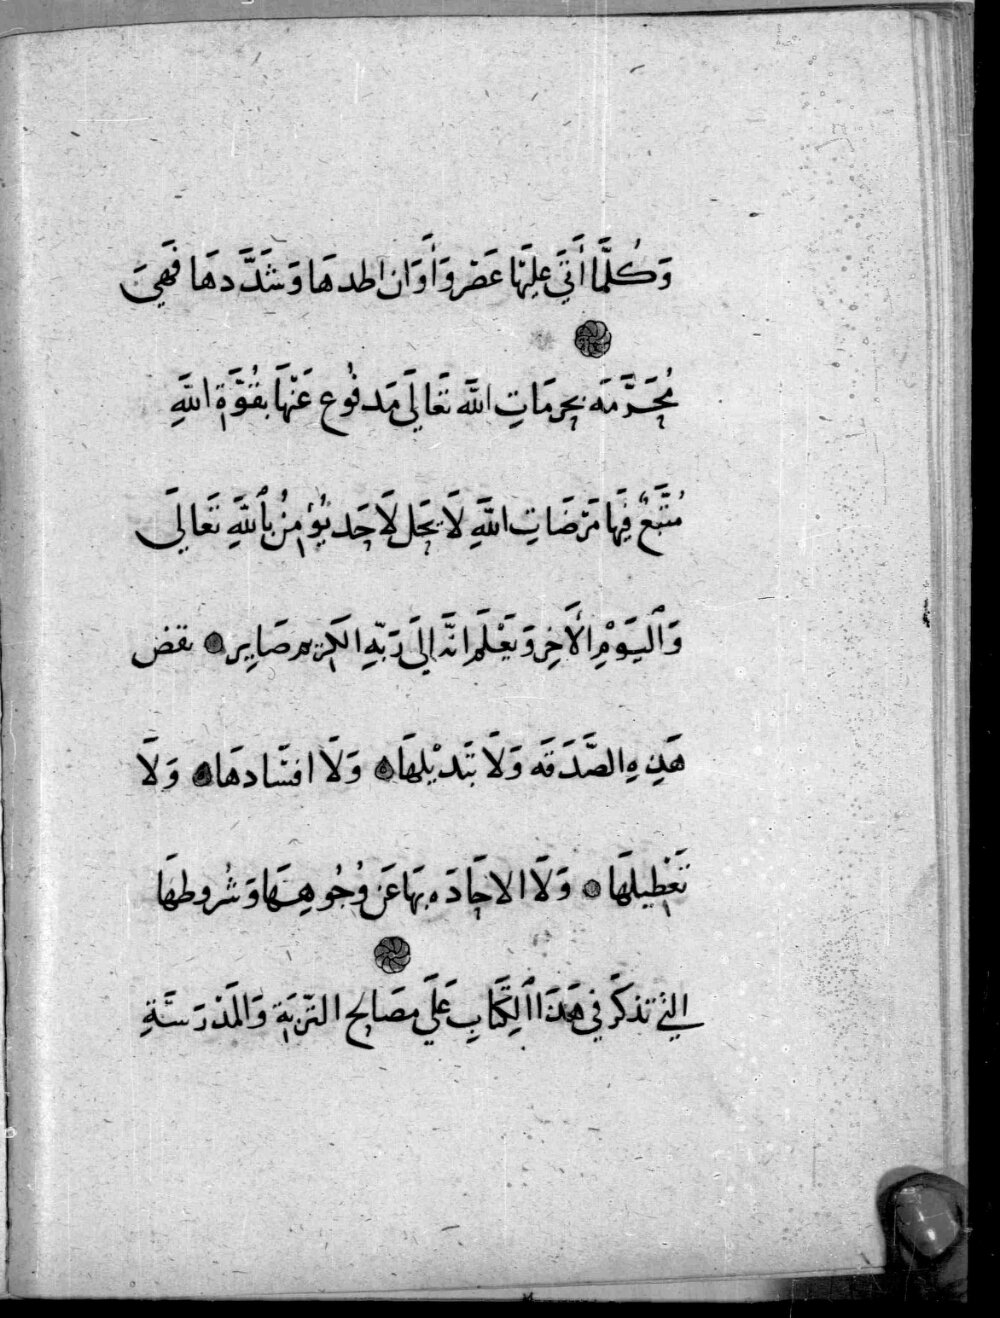 وَكُلَّمَا أَتَى عَلَيْهَا عَصْر وَأَوَان اطدهَا وَشَدَّدهَا فَهِيَ
مُحَرَّمَه بِحرمَاتِ اللَّه تَعَالَى مَدفُوع عَنْهَا بقُوَّة اللَّهِ
مُتَّبَعٌ فِيهَا مَرْضَاتِ اللَّهِ لَا يَحَل لَاحَد يُؤمِنُ بِاَللَّهِ تَعَالَى
وَالْيَوْمِ الْأَخِرِ وَيَعْلَم انَّه إلَى رَبِّهِ الكَرِيم صَايِر نقض
هَذِهِ الصَّدَقَه وَلَا تَبَديْلِهَا وَلَا افسَادهَا وَلَا
تَعْطِيلهَا وَلَا الاحَادَه بهَا عَن وُجُوهِهَا وَشُروطهَا
الَّتِي تذكَر فِي هَذَا الْكِتَابِ عَلَى مصَالِح التُّربَة وَالمَدْرَسَةِ